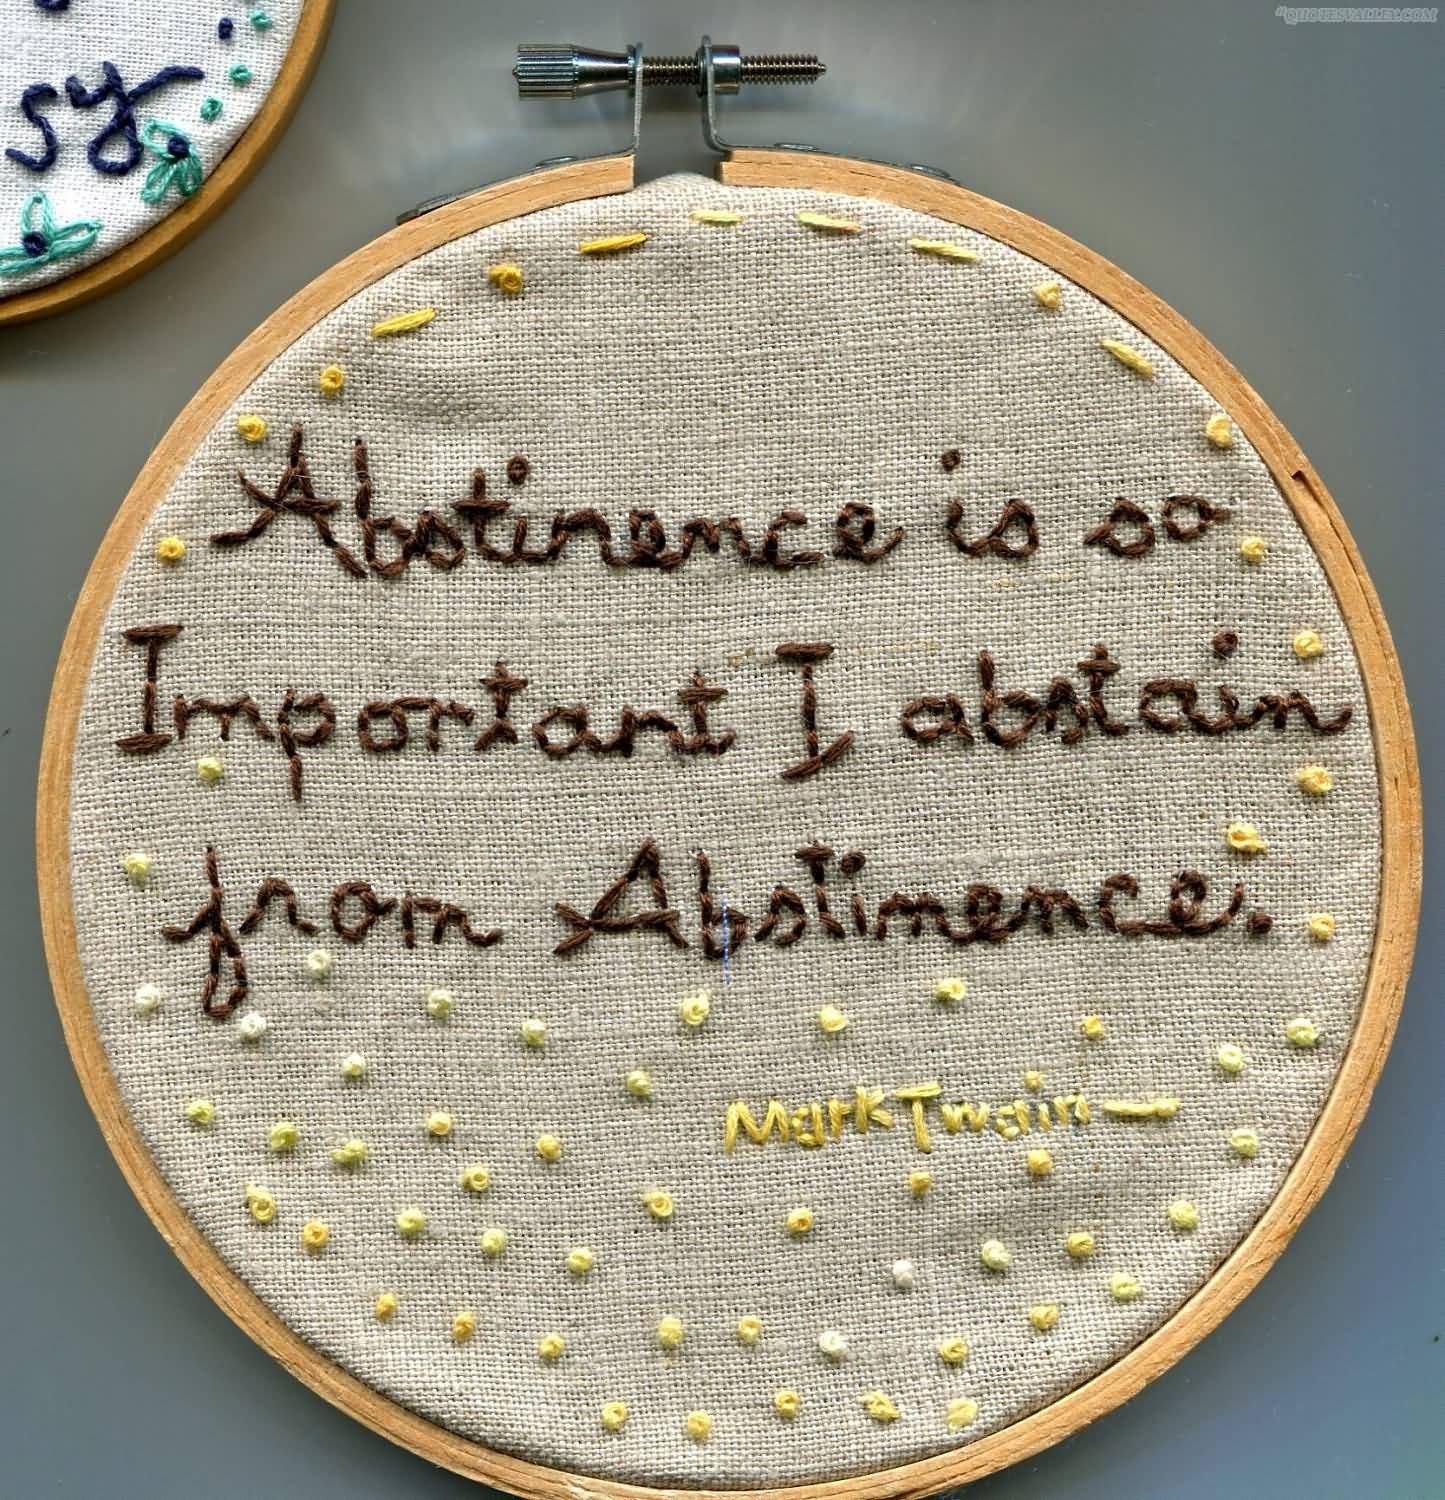 "QUOTESVALLEY.COM
sy
Abstinence is so
Important I abstain
from Abstinence.
Mark Twain —